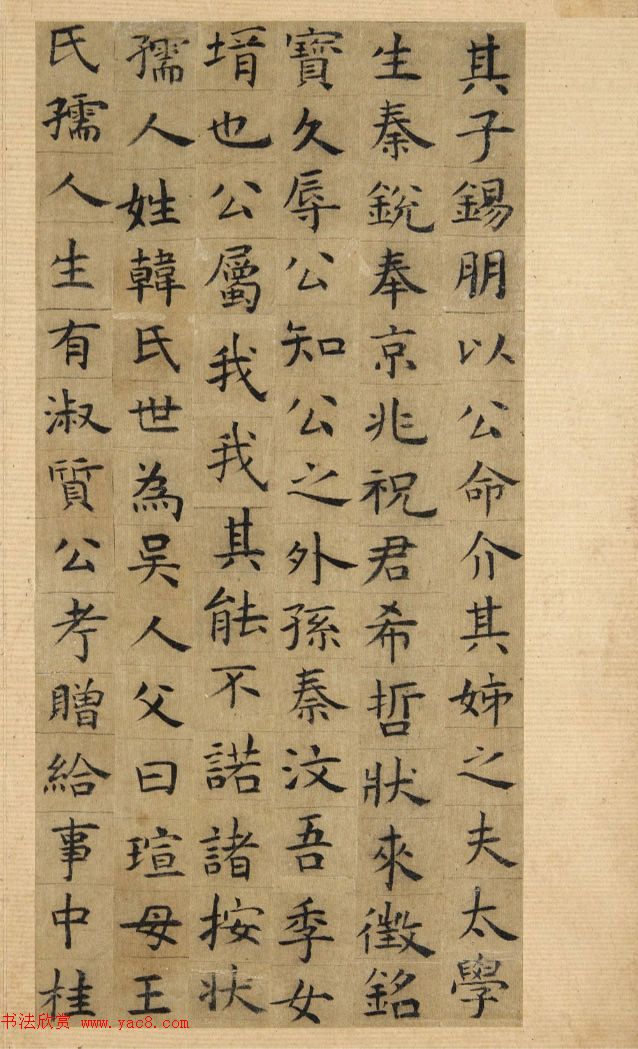 其子錫朋以公命介其姊之夫太學
生秦銳奉京兆祝君希哲狀來徵銘
寶久辱公知公之外孫秦汶吾季女
壻也公屬我我其能不諾諸按狀
孺人姓韓氏世為吴人父曰瑄母王
氏孺人生有淑質公考贈給事中桂
书法欣赏 www.yac8.com